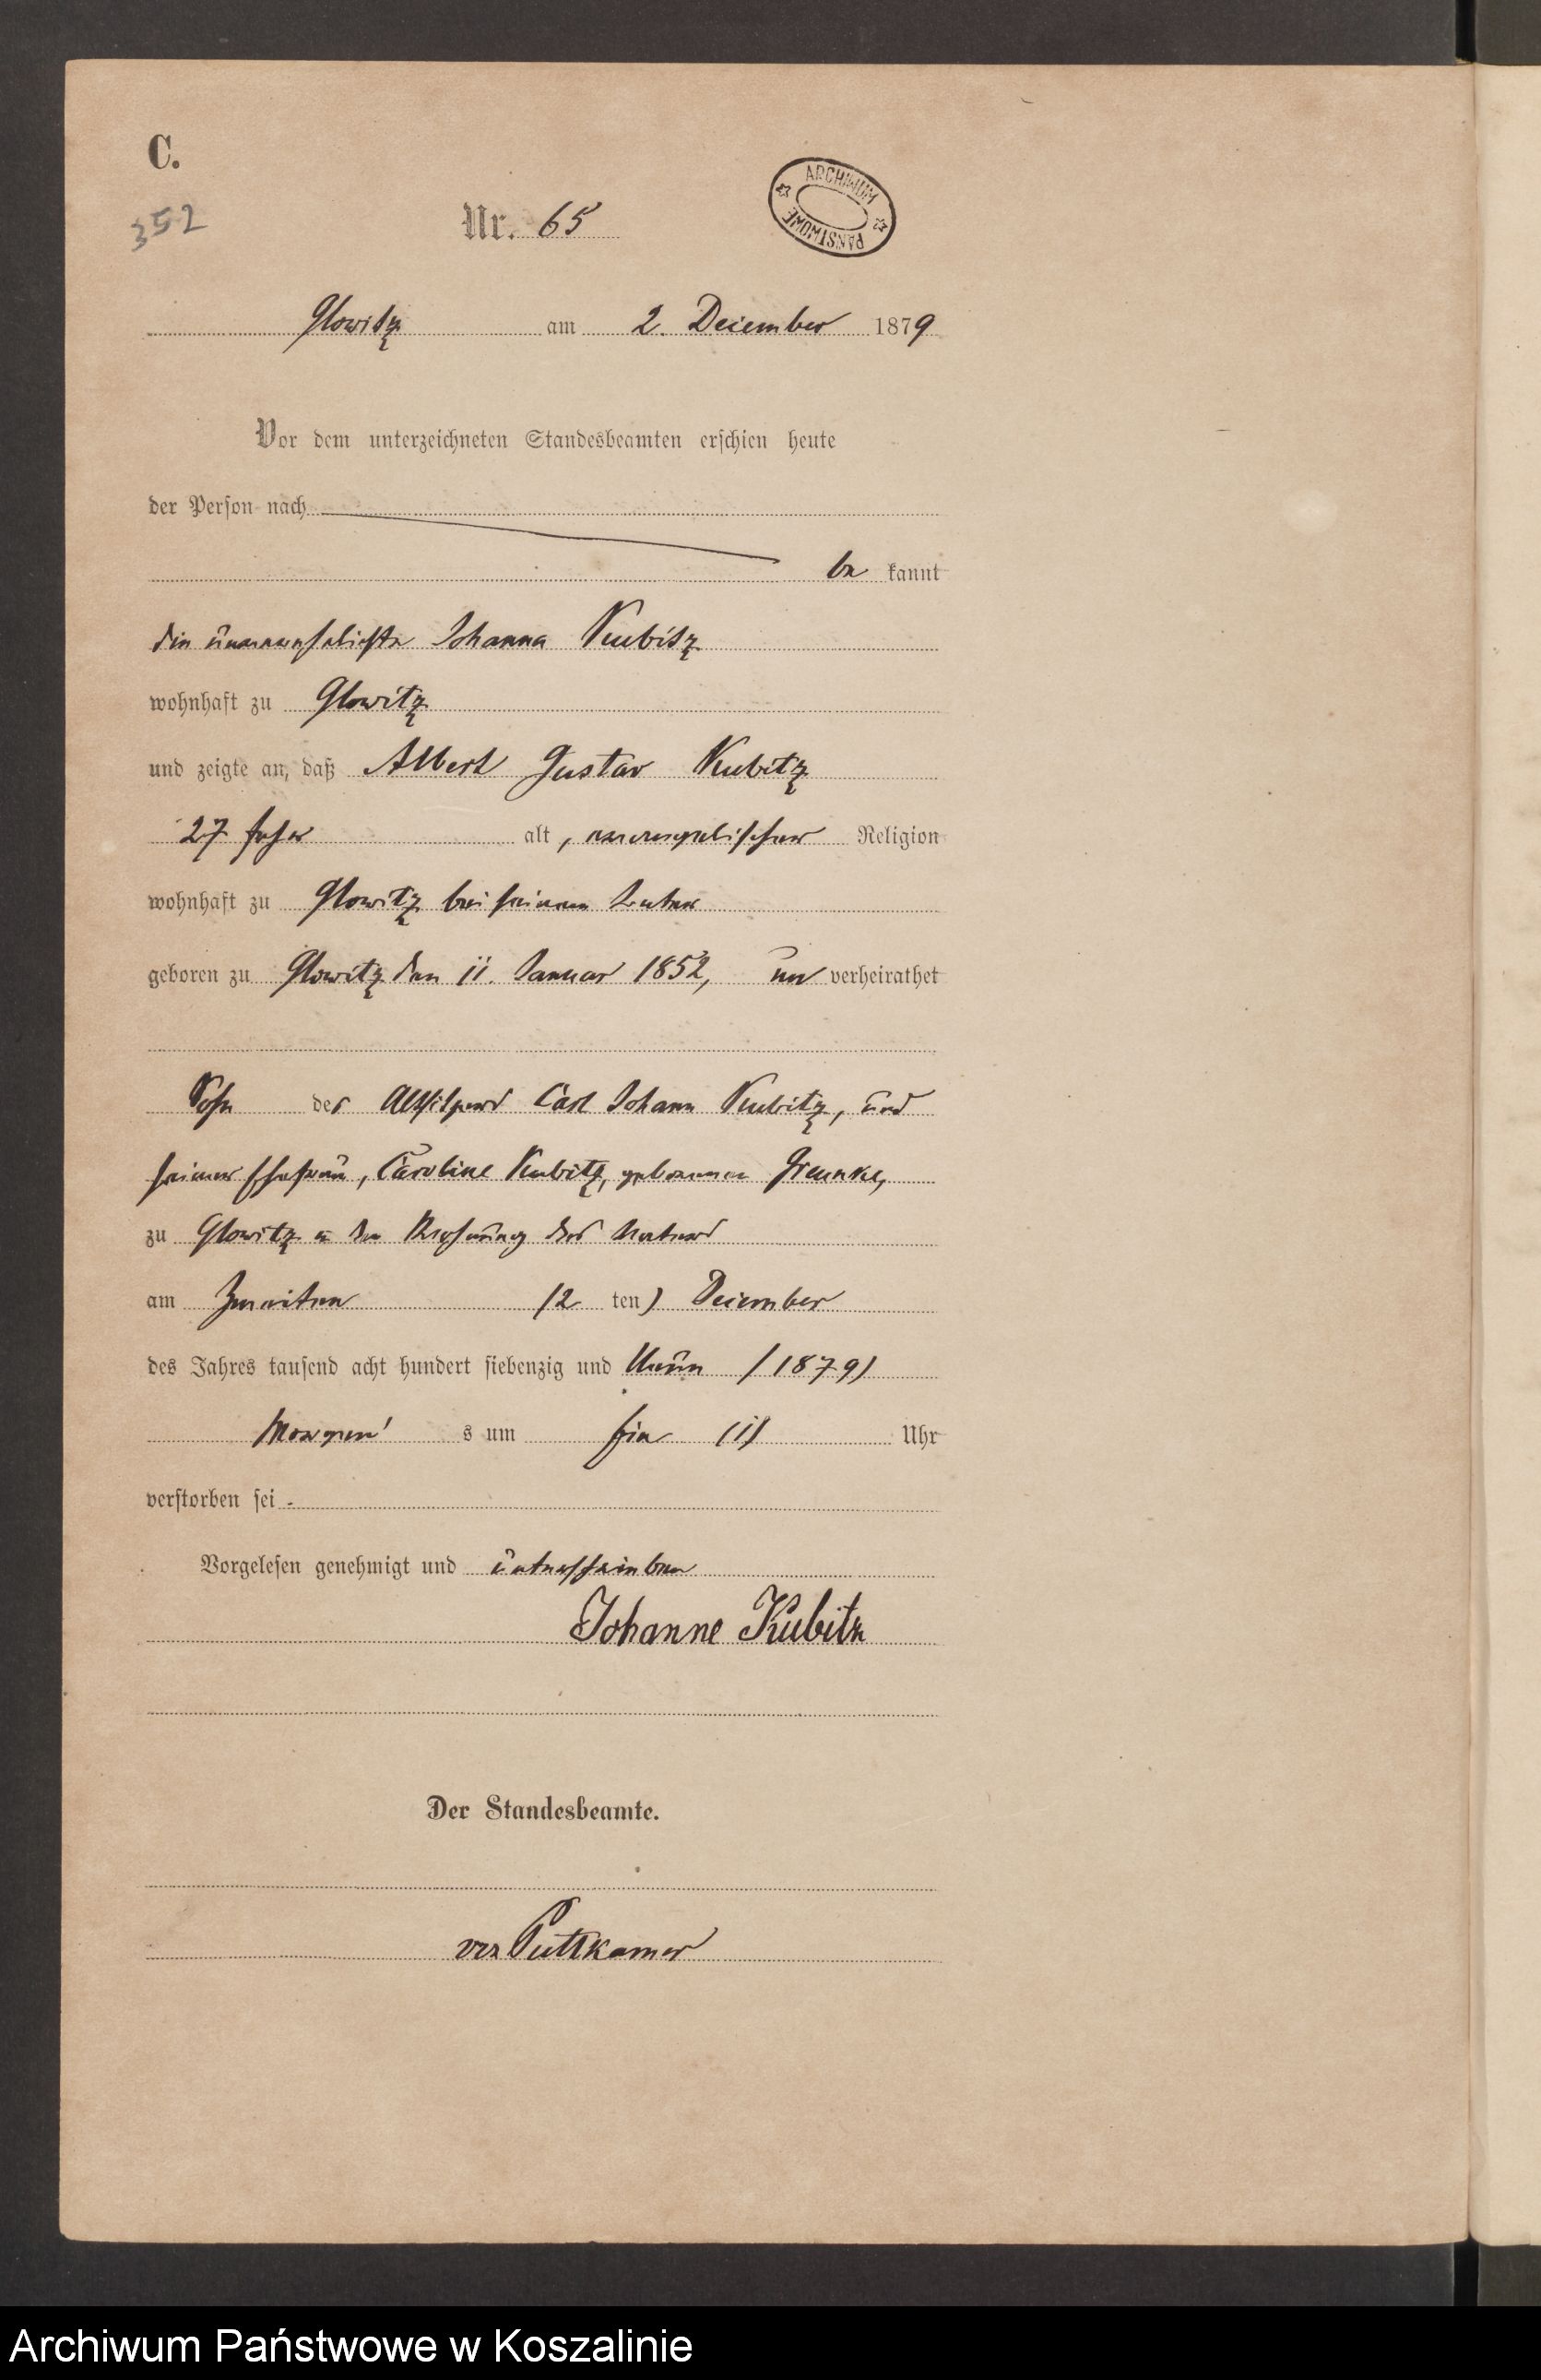 C.
352
Nr. 65
ARCHIWUM PAŃSTWOWE
Glowitz am 2. December 1879
Vor dem unterzeichneten Standesbeamten erschien heute
der Person nach
be kannt
die unverehelichte Johanna Kubitz
wohnhaft zu Glowitz
und zeigte an, daß Albert Gustav Kubitz
27 Jahr alt, evangelischer Religion
wohnhaft zu Glowitz bei seinem Vater
geboren zu Glowitz den 11. Januar 1852, un verheirathet
Sohn des Altsitzers Carl Johann Kubitz, und
seiner Ehefrau, Caroline Kubitz, geborenen
zu Glowitz in der Wohnung des Vaters
am Zweiten (2 ten) December
des Jahres tausend acht hundert siebenzig und Neun (1879)
Morgen s um Ein (1) Uhr
verstorben sei.
Vorgelesen genehmigt und unterschrieben
Johanne Kubitz
Der Standesbeamte.
von Puttkamer
Archiwum Państwowe w Koszalinie